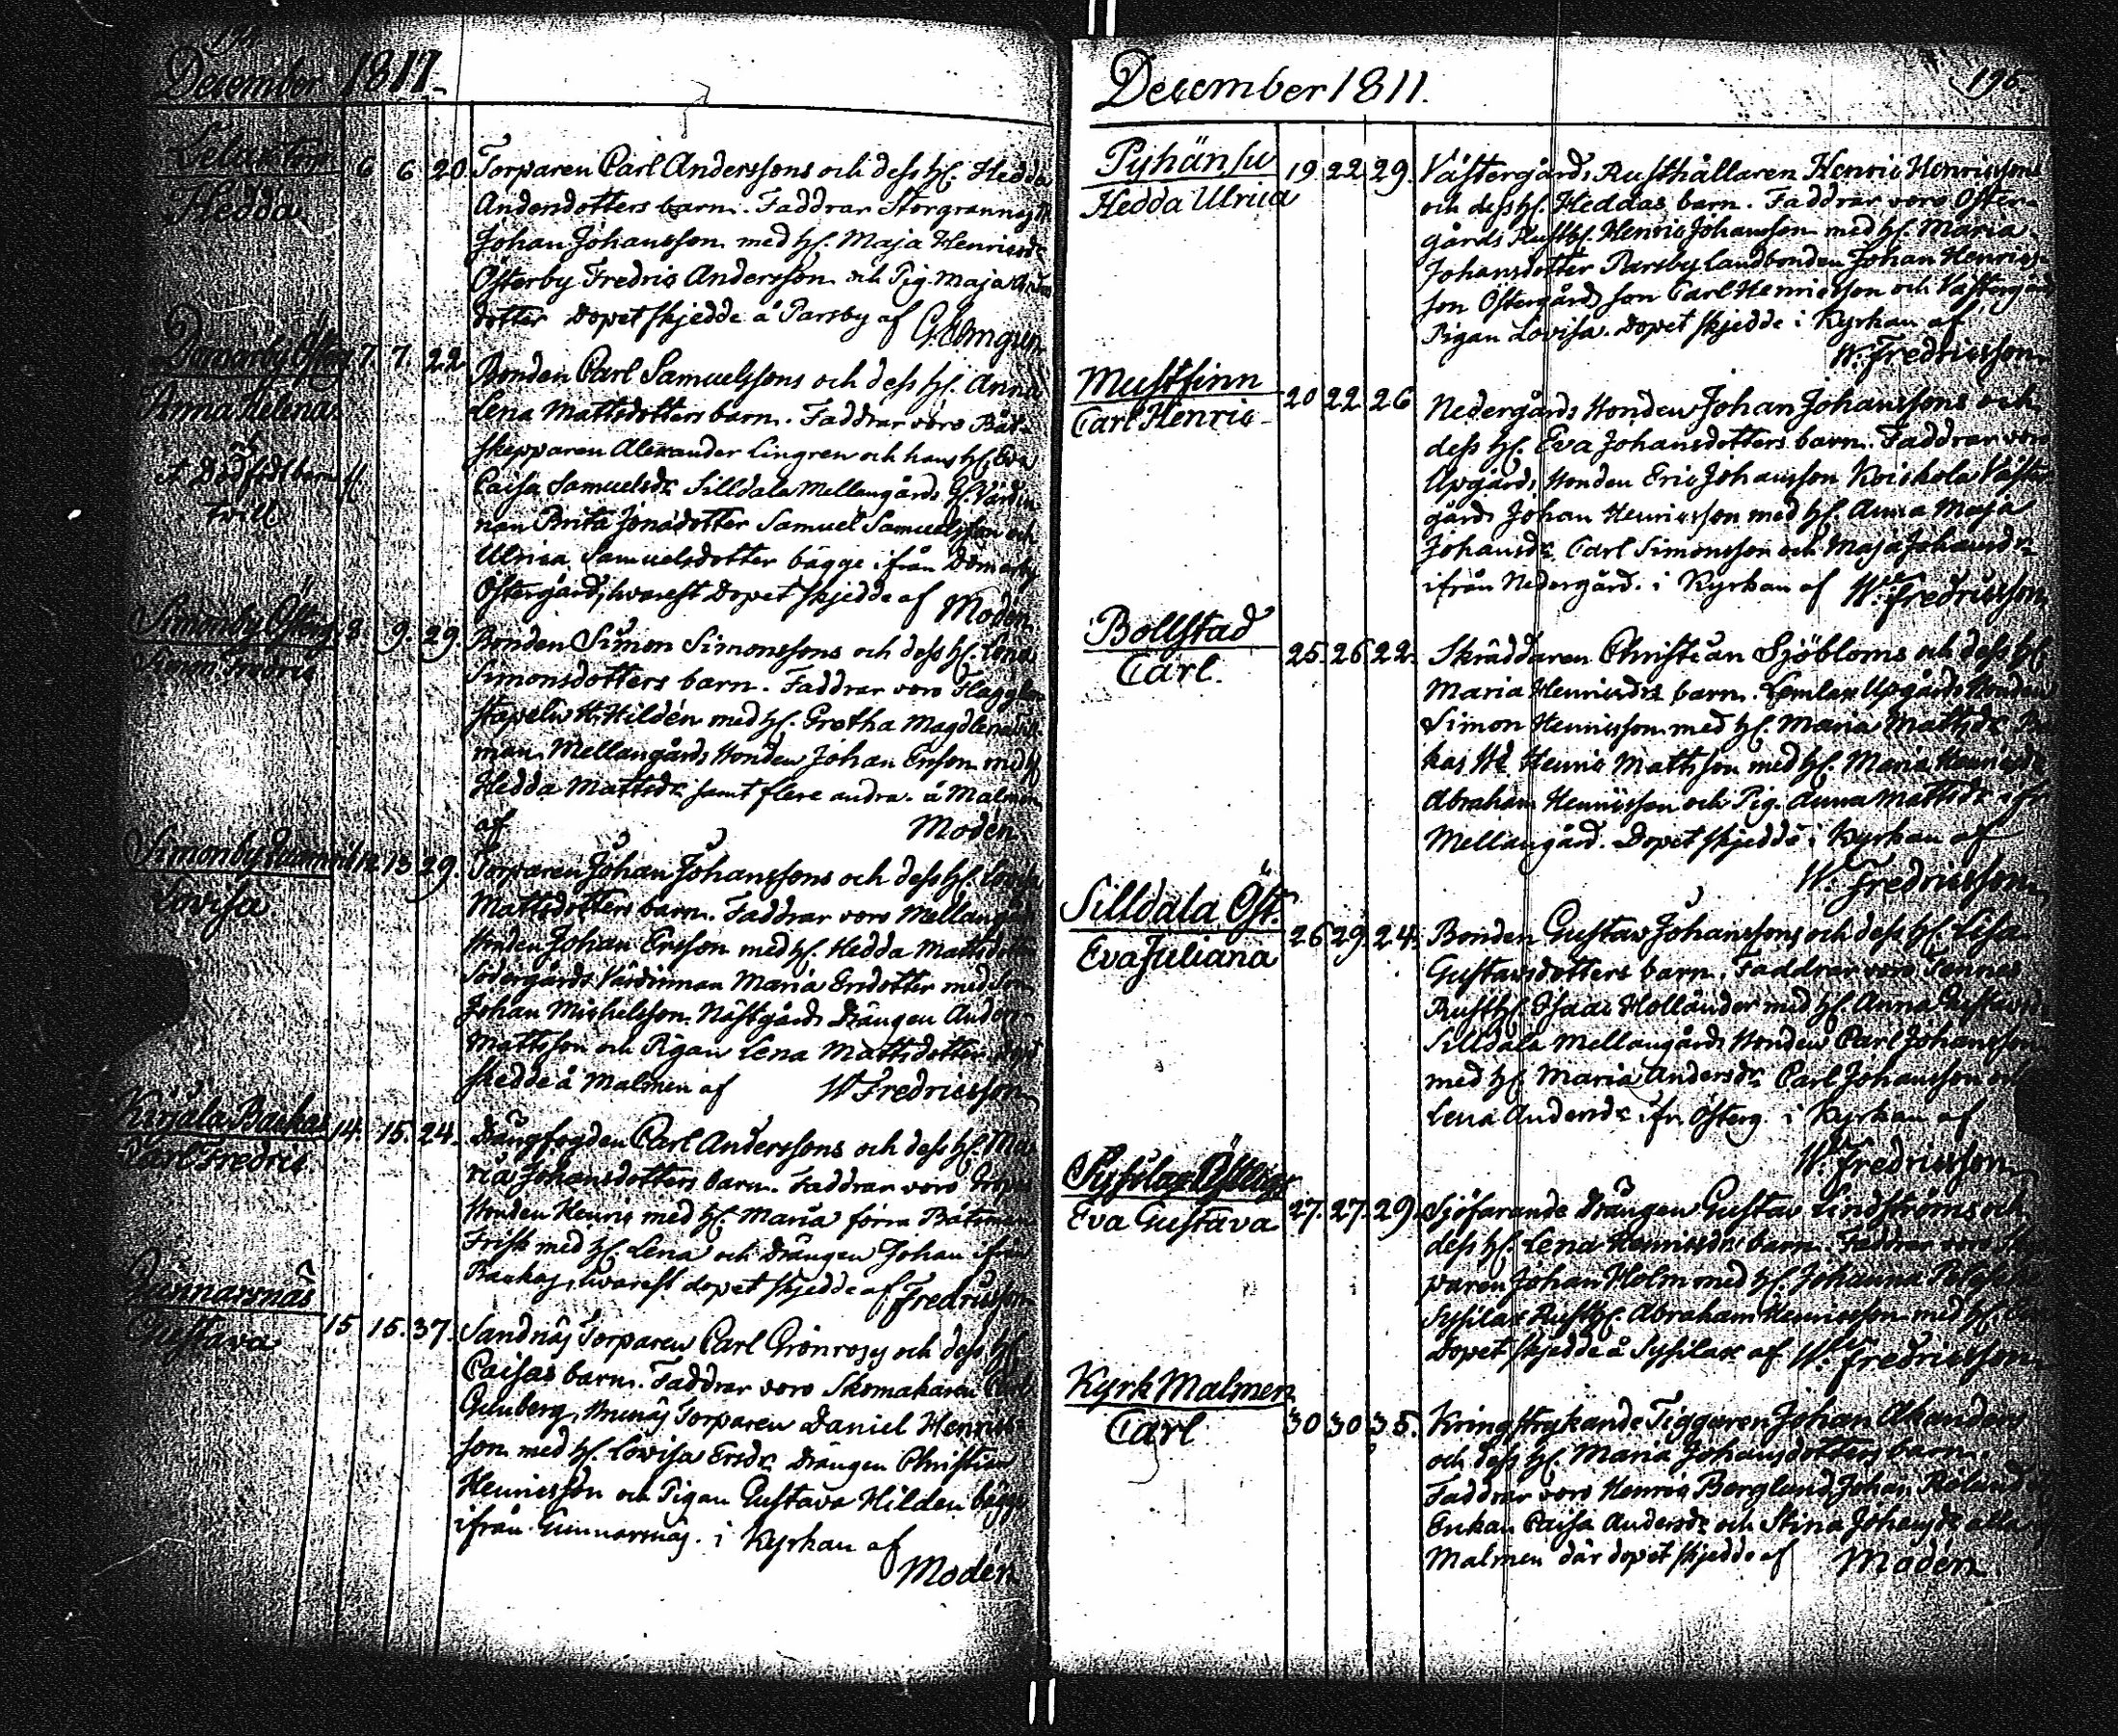 December 1811.
Hedda
6 6 20. Torparen Carl Anderssons och dess h. Hedda
Andersdotters barn. Faddrar Storgrannäs
Johan Johansson med h. Maja Henricsdr
Österby Fredric Andersson och Pig. Maja
dotter Dopet skjedde å Parsby af G. Elmgren
Domarby Österg
Anna Helena
et Dödfödt barn
tvill
7. 7. 22 Bonden Carl Samuelssons och dess h. Anna
Lena Mattsdotters barn. Faddrar voro Båt-
skepparen Alexander Lingren och hans h. Eva
Caisa Samuelsdr Silldala Mellangårds G. Värdin
nan Brita Jonasdotter Samuel Samuelsson och
Ulrica Samuelsdotter bägge ifrån Domarby
Östergård, hvarest Dopet skjedde af Modén.
Simonby Österg
Simon Fredric
8. 9. 29. Bonden Simon Simonssons och dess h. Lena
Simonsdotters barn. Faddrar voro
H. Hildén med h. Gretha Magdlena
man Mellangårds Bonden Johan Ersson med h
Hedda Mattsdr samt flere andra. å Malmen
af Modén.
Simonby
Lovisa
12 13 29. Torparen Johan Johanssons och dess h. Lovisa
Mattsdotters barn. Faddrar voro Mellangårds
Bonden Johan Ersson med h. Hedda Mattsdotter
Södergårds Värdinnan Maria Ersdotter med Son
Johan Michelsson. Nästgårds Drängen Anders
Mattsson och Pigan Lena Mattsdotter. dopet
skedde å Malmen af W Fredricsson
Kirjala Backas
Carl Fredric
14. 15. 24. Drängfogden Carl Anderssons och dess h. Ma
ria Johansdotters barn. Faddrar voro
Bonden Henric med h. Maria förra Båtsman
Frisk med h. Lena och Drängen Johan ifrån
Backas, hvarest dopet skjedde af Fredricsson
Gunnarsnäs
Gustava
15 15. 37. Sandnäs Torparen Carl Grönroos och dess h
Caisas barn. Faddrar voro Skomakaren Carl
Grunberg, Torparen Daniel Henrics
son med h. Lovisa Ersdr Drängen Christian
Henricsson och Pigan Gustava Hildén bägge
ifrån Gunnarsnäs. i Kyrkan af
Modén
December 1811.
196.
Pyhänsu
Hedda Ulrica
19. 22. 29. Västergårds Rusthållaren Henric Henricssons
och dess h. Heddas barn. Faddrar voro Öster-
gårds Rusth. Henric Johansson med h. Maria
Johansdotter Parsby Landbonden Johan Henrics-
son Östergårds son Carl Henricsson och Västergårds
Pigan Lovisa. Dopet skjedde i Kyrkan af
W. Fredricsson
Mustfinn
Carl Henric
20 22. 26 Nedergårds Bonden Johan Johanssons och
dess h. Eva Johansdotters barn. Faddrar voro
Upgårds Bonden Eric Johansson Koiskola Väster
gårds Johan Henricsson med h. Anna Maja
Johansdr Carl Simonsson och Maja Johansdr
ifrån Nedergård. i Kyrkan af W. Fredricsson
Bollstad
Carl.
25. 26. 22. Skräddaren Christian Sjöbloms och dess h
Maria Henricsdrs barn. Lemlax Upgårds Bonden
Simon Henricsson med h. Maria Mattsdr
kas Bd Henric Mattsson med h. Maria Henricsdr
Abraham Henricsson och Pig. Anna Mattsdr ifr
Mellangård. Dopet skjedde i Kyrkan af
W. Fredricsson
Silldala Öst.
Eva Juliana
26. 29. 24. Bonden Gustav Johanssons och dess h. Lisa
Gustavsdotters barn. Faddrar voro Tennäs
Rusth. Isaac Holländer med h. Anna Gustavsdr
Silldala Mellangårds Bonden Carl Johansson
med h. Maria Andersdr Carl Johansson och
Lena Andersdr ifr. Österg. i Kyrkan af
W. Fredricsson
Eva Gustava
27. 27. 29. Sjöfarande Drängen Gustav Lindströms och
dess h. Lena Henricsdrs barn. Faddrar voro Tor
paren Johan Holm med h. Johanna
Sysilax Rusth. Abraham Henricsson med h.
Dopet skjedde å Sysilax af W. Fredricsson
Kyrk Malmen
Carl
30 30 35. Kringstrykande Tiggaren Johan Akanders
och dess h. Maria Johansdotters barn.
Faddrar voro Henric Berglund Johan Roland
Enkan Caisa Andersdr och Stina Johansdr alla
Malmen där dopet skjedde af Modén.